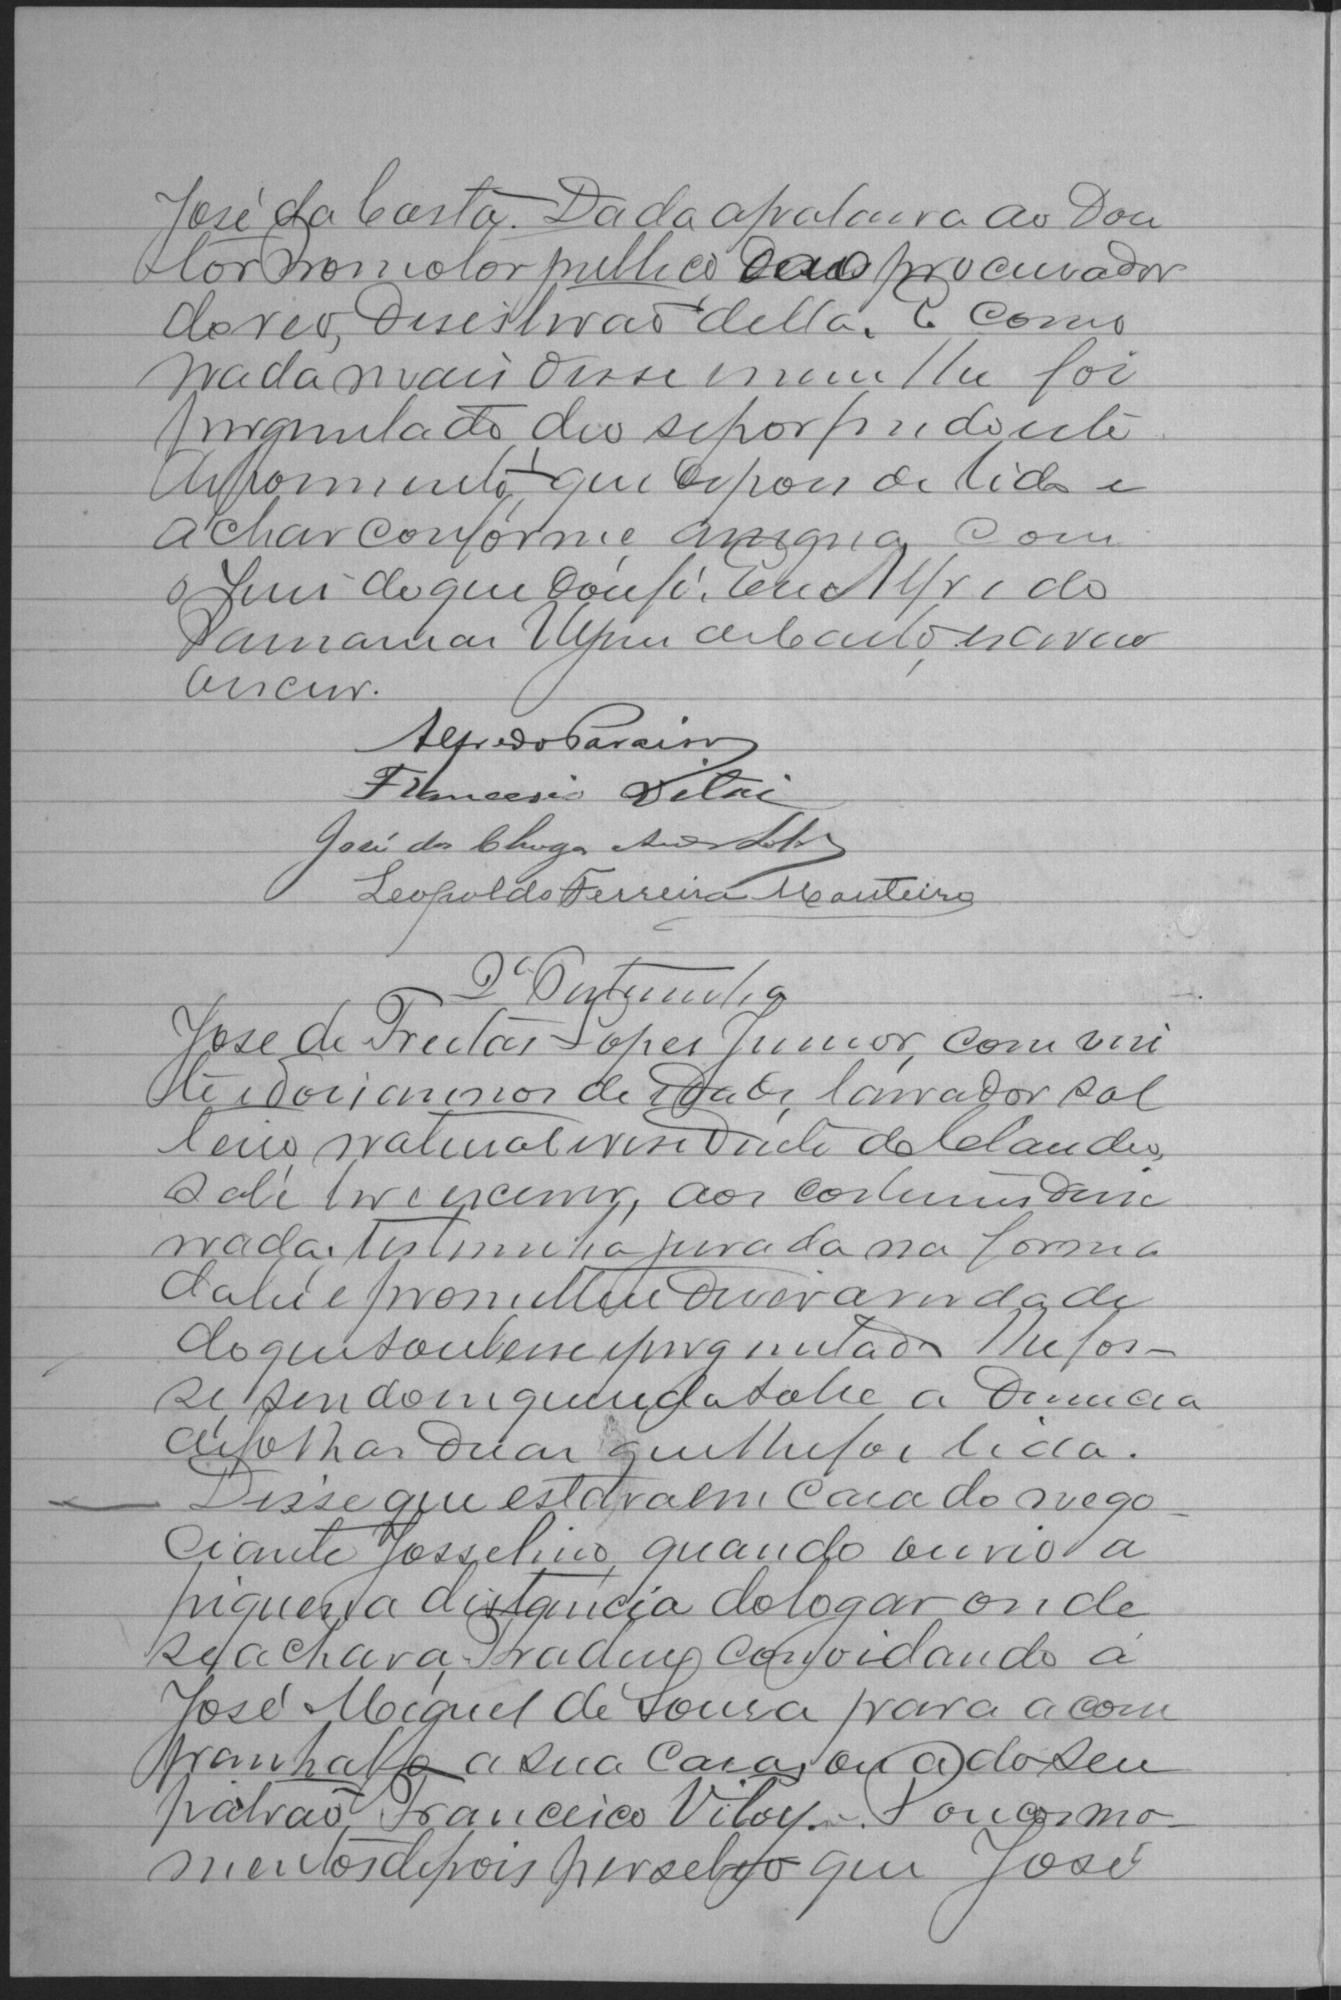 José da Costa. Dada a palavra ao Dou
tor Promotor publico e ao procurador
do reo, desistirão della. E como
nada mais disse nem lhe foi
perguntado, deo se por findo este
depoimento que depois de lido e
achar conforme, assigna com
o Juis do que dou fé. Eu Alfredo
de Castro, escrivão
escrevi.
Alfredo Paraiso
Francesco Vitoi
José das Chagas
Leopoldo Ferreira Monteiro
2ª Testemunha
José de Freitas Lopes Junior, com vin
te e dois annos de idade, lavrador sol
teiro, natural e residente do Claudio,
sabe ler e escrever, aos costumes disse
nada. Testemunha jurada na forma
da lei e prometteu diser a verdade
do que soubesse e perguntado lhe fos-
se, sendo inquerida sobre a denuncia
de folhas duas que lhe foi lida.
Disse que estava em casa do nego
ciante Josselino, quando ouvio a
piquena distancia do logar onde
se achava, convidando á
José Miguel de Sousa para acom
panhal-o a sua casa, ou a do seu
patrão, Francisco Vitoy. Poucos mo-
mentos depois persebeo que José